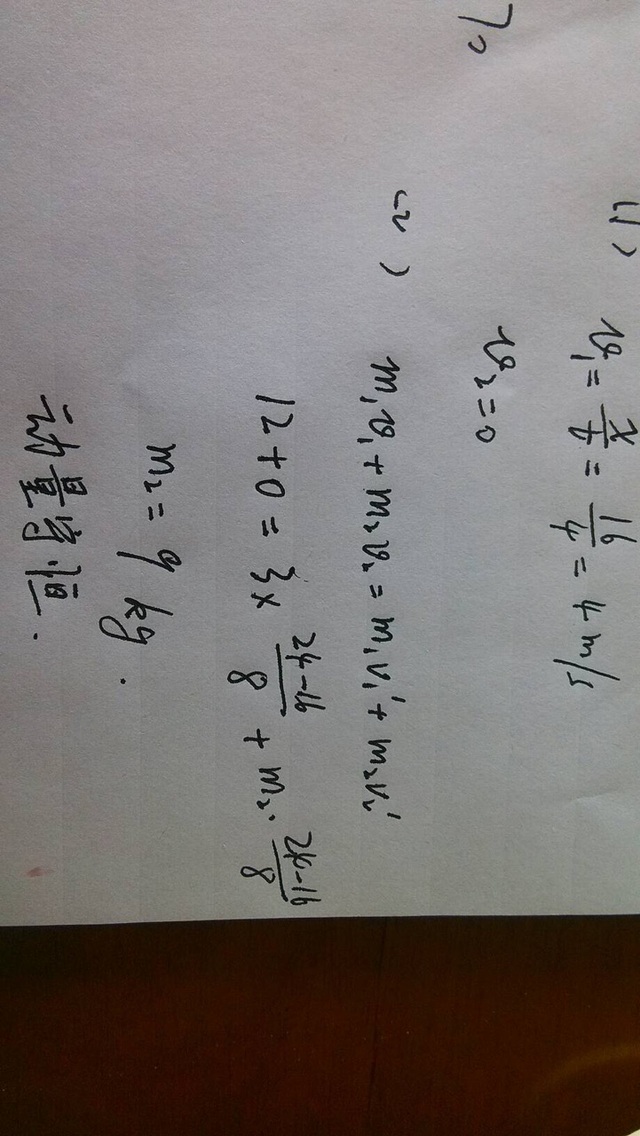 (1) v₁ = x/t = 16/4 = 4 m/s
v₂ = 0
(2) m₁v₁ + m₂v₂ = m₁v₁' + m₂v₂'
12 + 0 = 3 × (24-16)/8 + m₂ · (24-16)/8
m₂ = 9 kg.